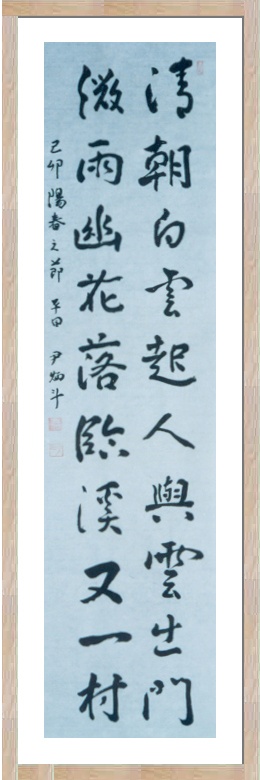 清朝白雲起人與雲出門
微雨幽花落臨溪又一村
己卯陽春之節 平田 尹炳斗